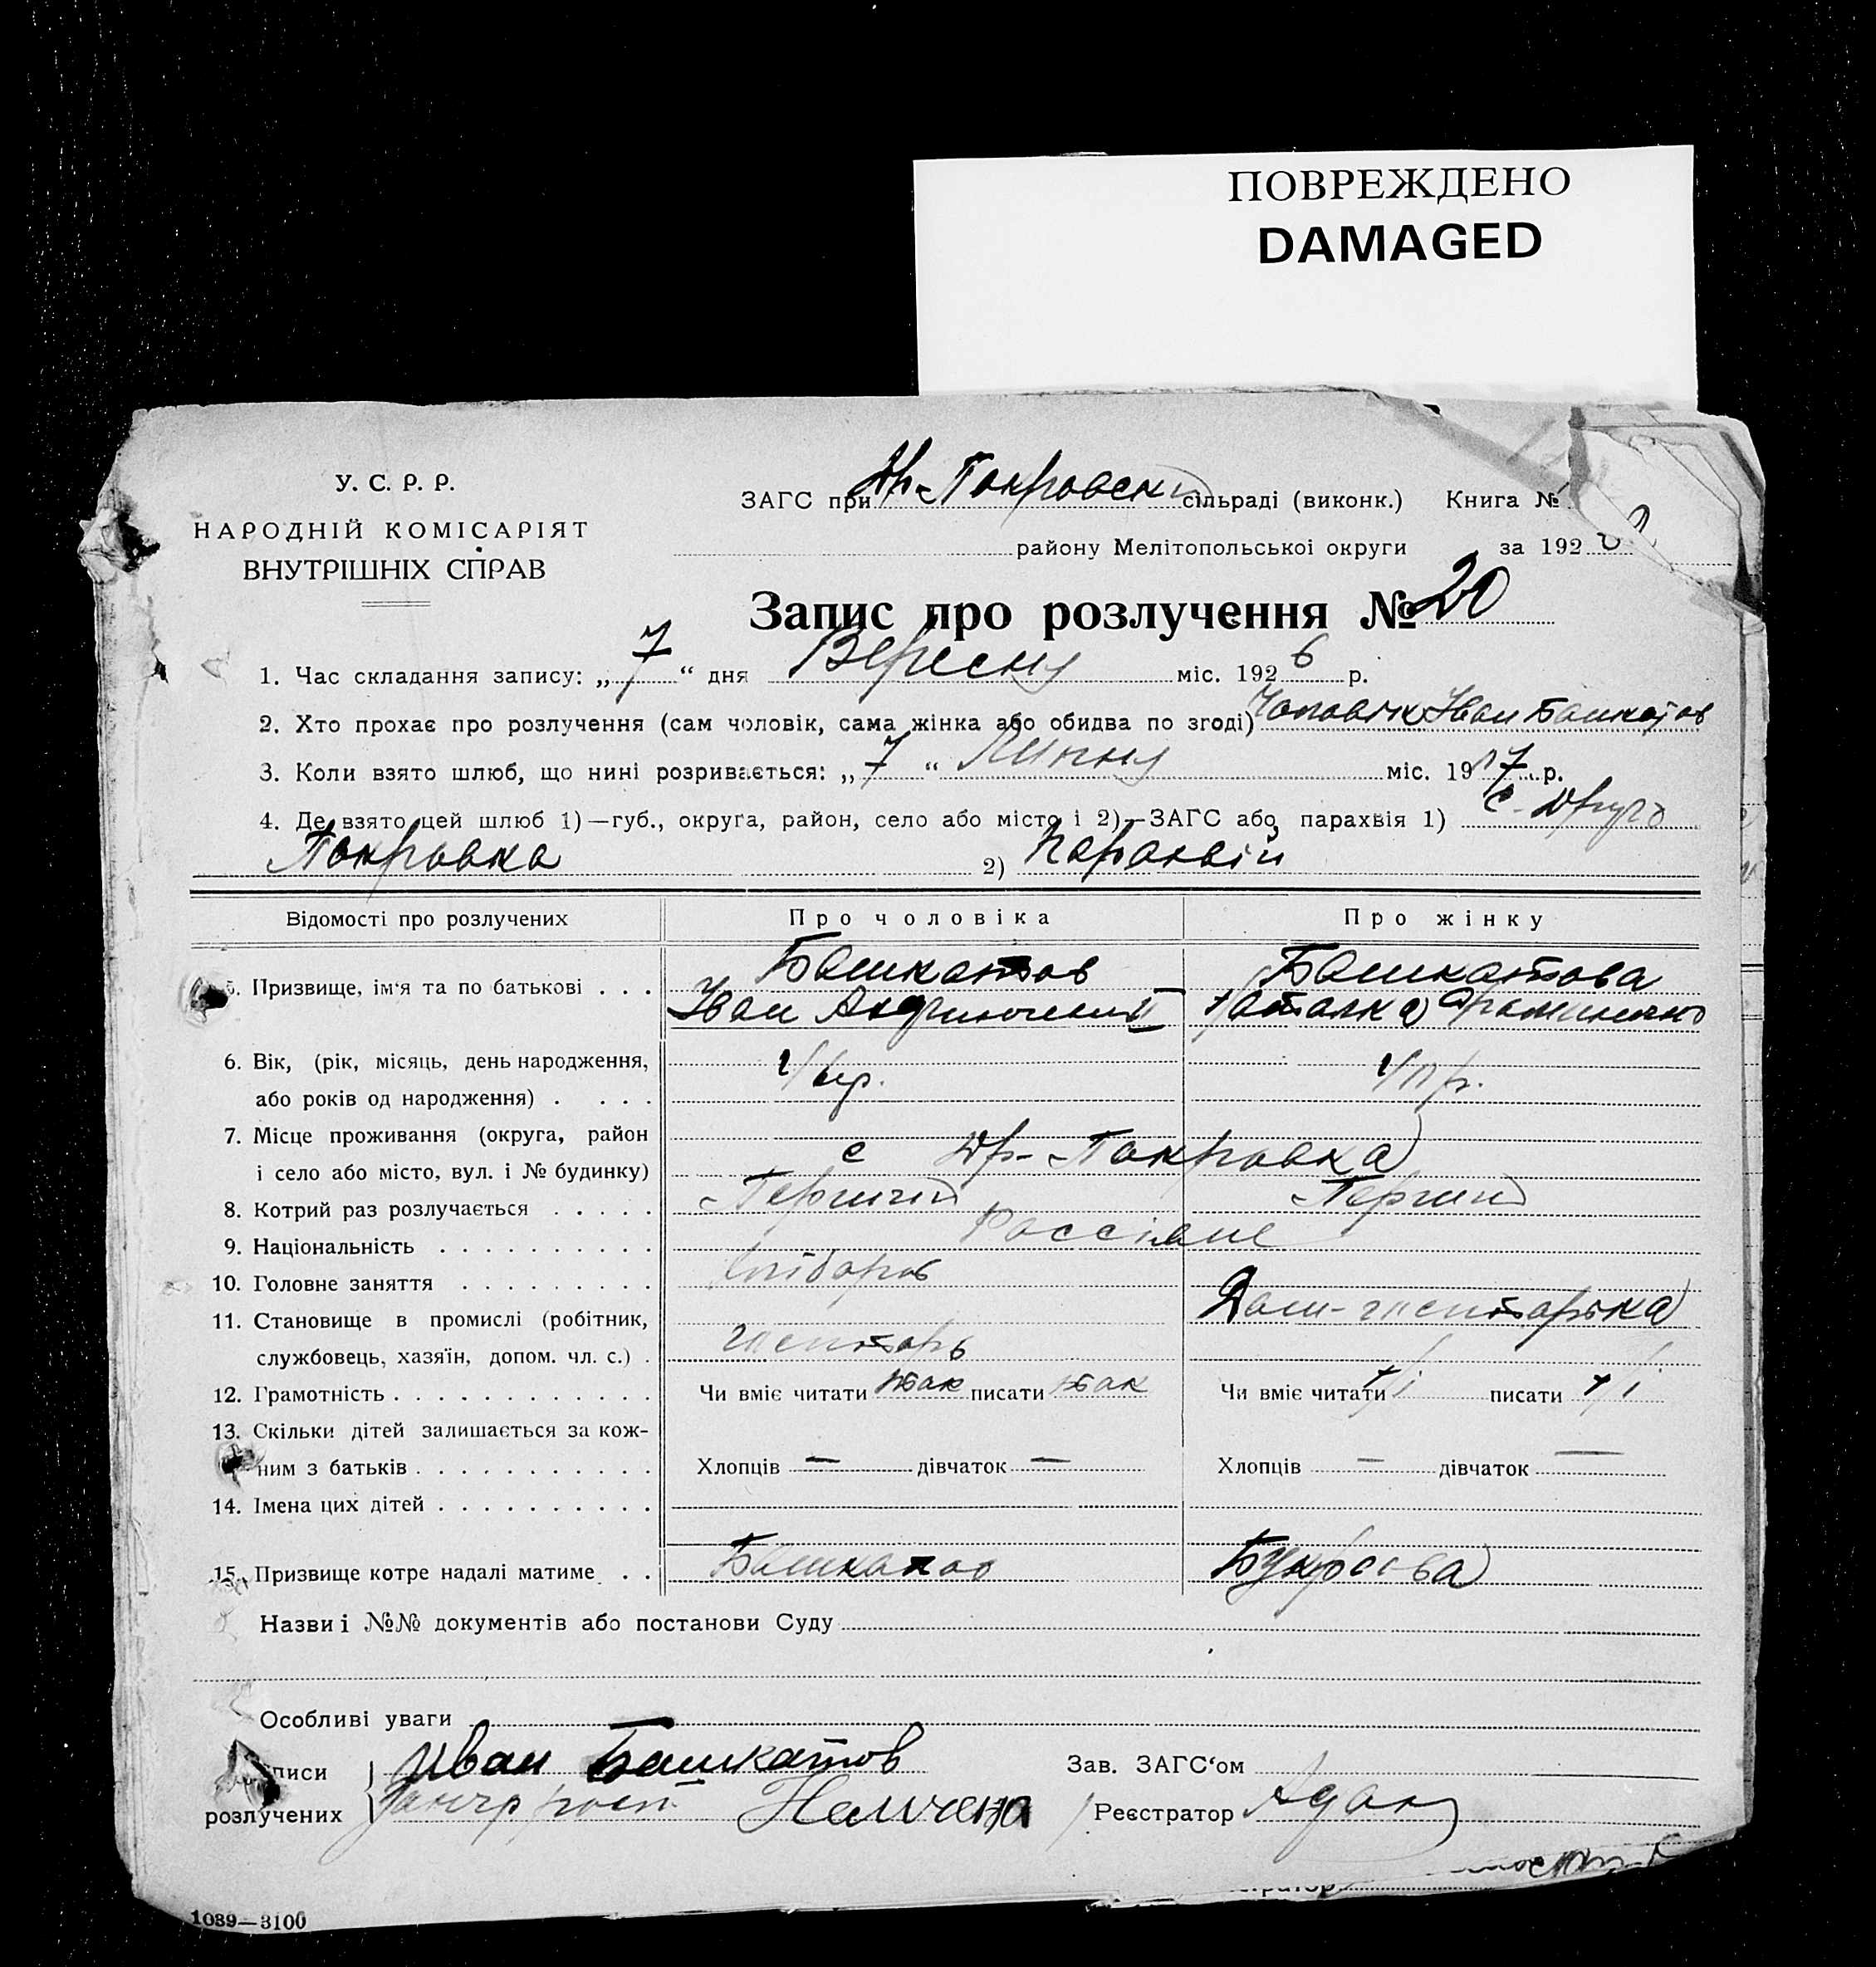 ПОВРЕЖДЕНО
DAMAGED
У. С. Р. Р.
НАРОДНІЙ КОМІСАРІЯТ
ВНУТРІШНІХ СПРАВ
ЗАГС при Др-Покровськ сільраді (виконк.) Книга №
району Мелітопольської округи за 192
Запис про розлучення № 20
1. Час складання запису: „ 7 “ дня Вересня міс. 192 6 р.
2. Хто прохає про розлучення (сам чоловік, сама жінка або обидва по згоді) Чоловік Іван Башкатов
3. Коли взято шлюб, що нині розривається: „ 7 “ Липня міс. 19 17 р.
4. Де взято цей шлюб 1)—губ., округа, район, село або місто і 2)—ЗАГС або парахвія 1) с. Друго
Покровка 2) Парахвій
Відомості про розлучених Про чоловіка Про жінку
Башкатов Башкатова
5. Призвище, ім‘я та по батькові . . . Іван Наталка
6. Вік, (рік, місяць, день народження,
або років од народження) . . . .
7. Місце проживання (округа, район
і село або місто, вул. і № будинку) с Др-Покровка
8. Котрий раз розлучається . . . . . Перший Перший
9. Національність . . . . . . . . . . Россіяне
10. Головне заняття . . . . . . . . . Хлібороб
11. Становище в промислі (робітник, Дом-господарька
службовець, хазяїн, допом. чл. с.) . господарь
12. Грамотність . . . . . . . . . . . . Чи вміє читати так писати так Чи вміє читати ні писати ні
13. Скільки дітей залишається за кож-
ним з батьків . . . . . . . . . . . Хлопців — дівчаток — Хлопців — дівчаток —
14. Імена цих дітей . . . . . . . . . .
15. Призвище котре надалі матиме . . Башкатов
Назви і №№ документів або постанови Суду
Особливі уваги
писи Иван Башкатов Зав. ЗАГС‘ом
розлучених Реєстратор
1039—3100